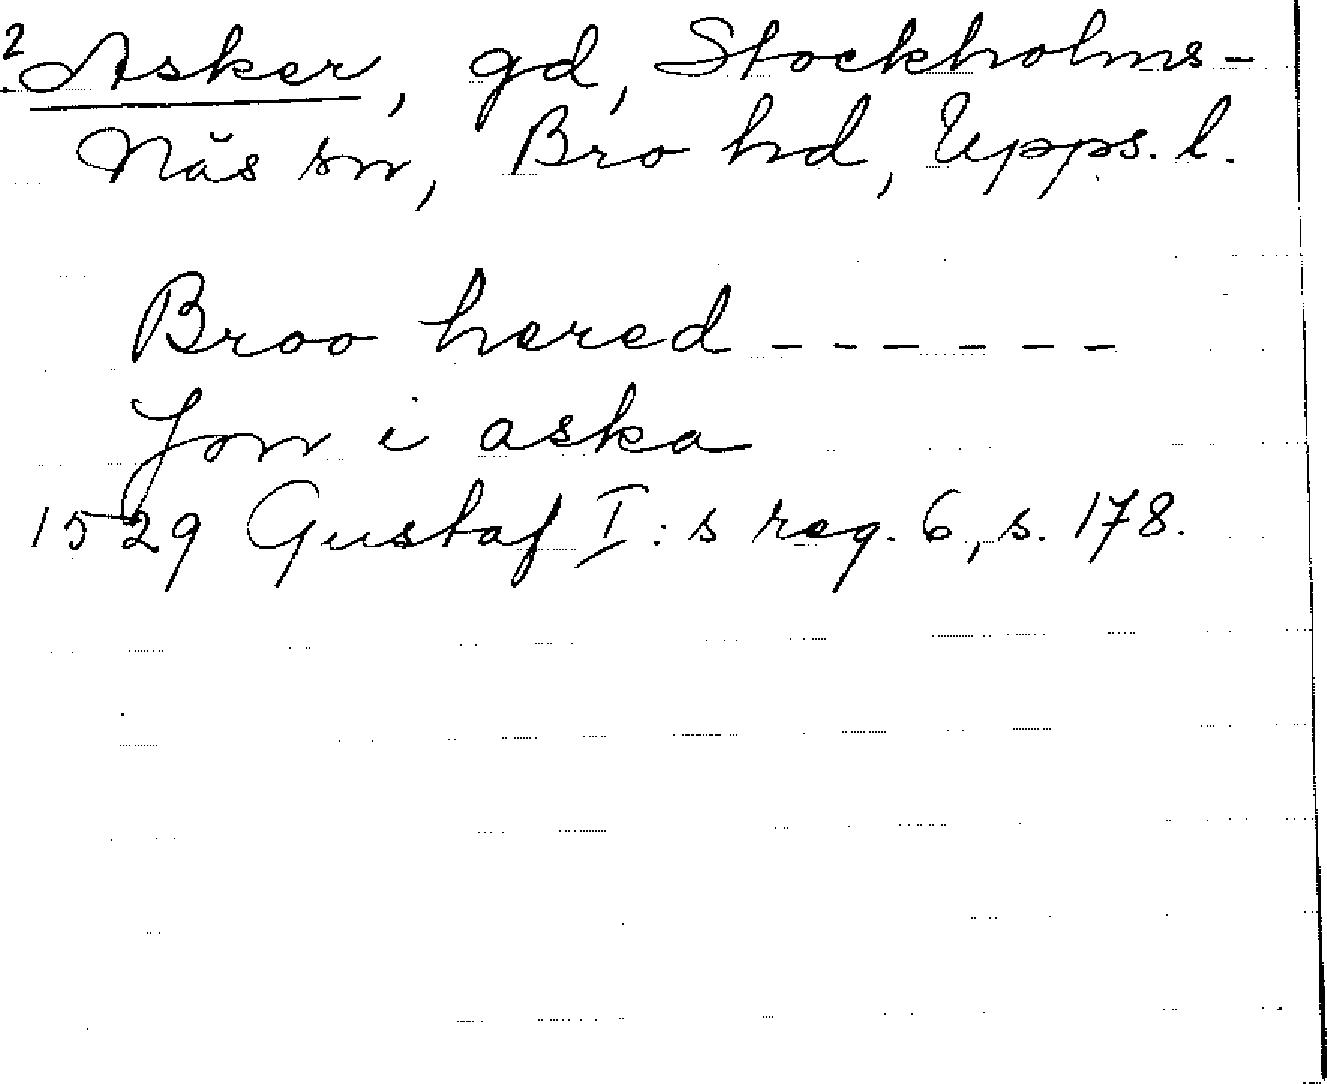 ? Asker, gd, Stockholms-
Näs sn, Bro hd, Upps. l.
Broo hered ------
Jon i aska
1529 Gustaf I:s reg. 6, s. 178.